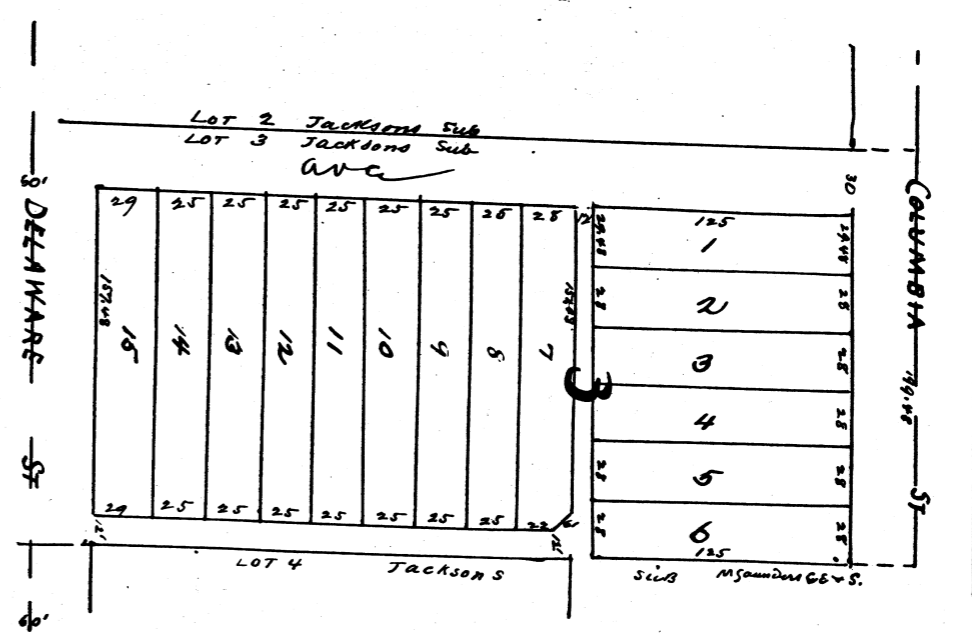 LOT 2 Jacksons Sub
LOT 3 Jacksons Sub
ave
50'
DELAWARE ST
60'
COLUMBIA ST
199.48
30
29 25 25 25 25 25 25 25 28
12
157.48
15 14 13 12 11 10 9 8 7
29 25 25 25 25 25 25 25 22
12'
12'
3
125
1
29.48
2
28 28
3
28
4
28
5
28 28
6
28 28
125
LOT 4 Jacksons
Sub M Saunders C.E. & S.